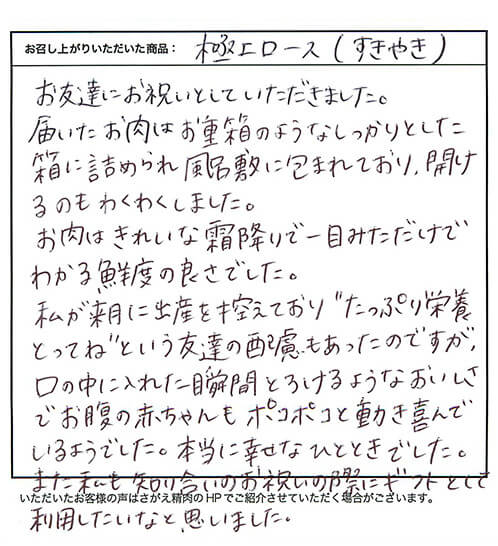 お召し上がりいただいた商品： 極上ロース(すきやき)
お友達にお祝いとしていただきました。
届いたお肉はお重箱のようなしっかりとした
箱に詰められ風呂敷に包まれており、開け
るのもわくわくしました。
お肉はきれいな霜降りで一目みただけで
わかる鮮度の良さでした。
私が来月に出産を控えており"たっぷり栄養
とってね"という友達の配慮もあったのですが、
口の中に入れた瞬間とろけるようなおいしさ
でお腹の赤ちゃんもポコポコと動き喜んで
いるようでした。本当に幸せなひとときでした。
また私も知り合いのお祝いの際にギフトとして
いただいたお客様の声はさがえ精肉のHPでご紹介させていただく場合がございます。
利用したいなと思いました。